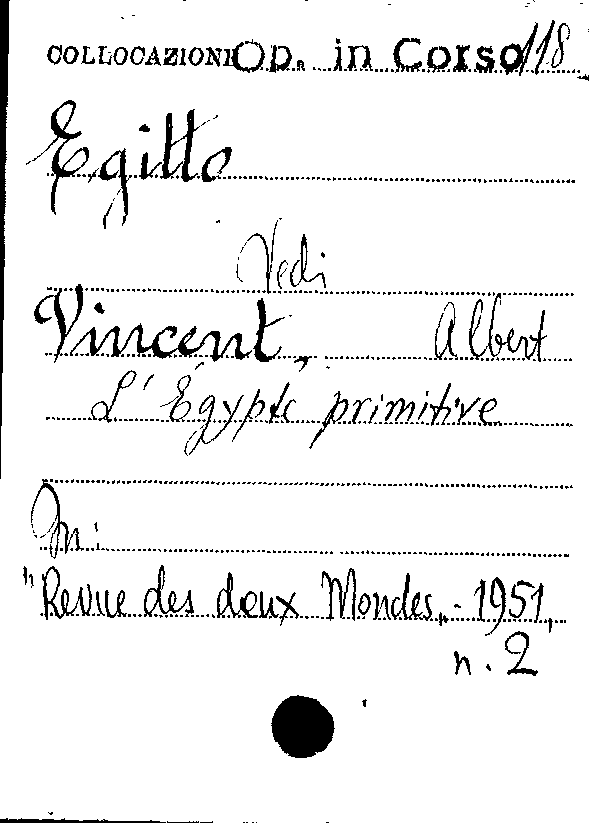 COLLOCAZIONI Op. in Corso 118
Egitto
Vedi
Vincent, Albert
L'Égypte primitive
In:
"Revue des deux Mondes„.- 1951,
n. 2